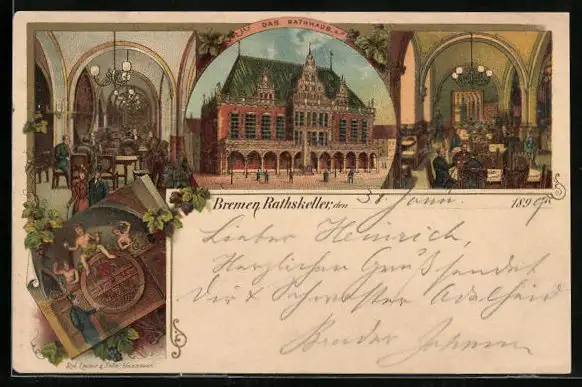 DAS RATHHAUS
Bremen, Rathskeller, den 31. Jann. 1897
Lieber Heinrich,
Herzlichen Gruß sendet
Dir & Schwester Adelheid
Bruder